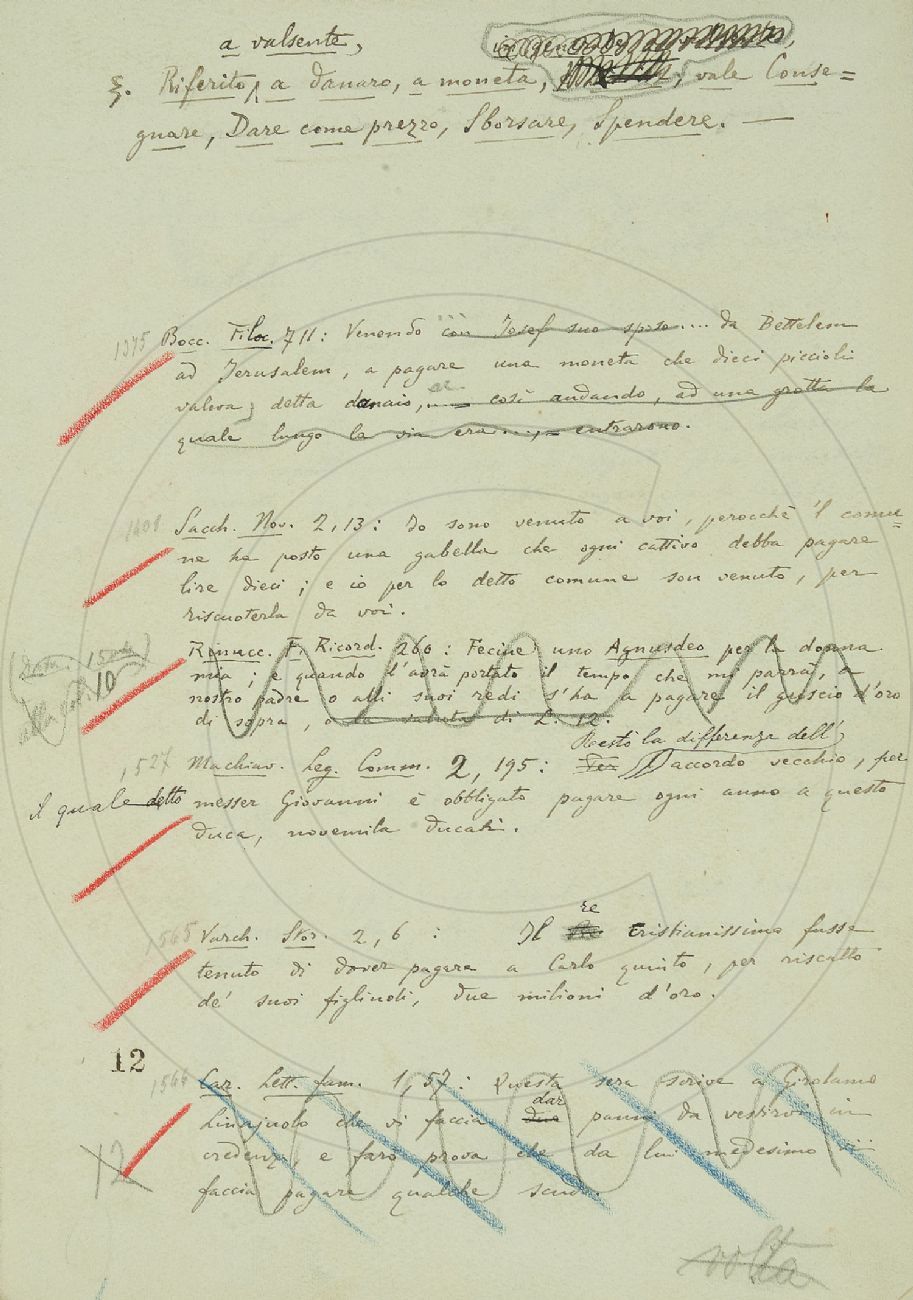 a valsente,
§. Riferito, a danaro, a moneta, vale Conse=
gnare, Dare come prezzo, Sborsare, Spendere. —
Bocc. Filoc. 711: Venendo con Josef suo sposo.... da Bettelem
ad Jerusalem, a pagare una moneta che dieci piccioli
valeva, detta danaio, così andando, ad una grotta la
quale lungo la via era..., entrarono.
Sacch. Nov. 2, 13: Io sono venuto a voi, perocchè 'l comu=
ne ha posto una gabella che ogni cattivo debba pagare
lire dieci; e io per lo detto comune son venuto, per
riscuoterla da voi.
Rinucc. F. Ricord. 260: Fecine uno Agnusdeo per la donna
mia; e quando l'avrà portato il tempo che mi parrà, a
nostro padre o alli suoi redi s'ha a pagare il guscio d'oro
di sopra, o la valuta di L. 12.
Resto la differenza dell'
1527 Machiav. Leg. Comm. 2, 195: accordo vecchio, per
il quale detto messer Giovanni è obbligato pagare ogni anno a questo
duca, novemila ducati.
re
1565 Varch. Stor. 2, 6: Il Cristianissimo fusse
tenuto di dover pagare a Carlo quinto, per riscatto
de' suoi figliuoli, due milioni d'oro.
12
1566 Car. Lett. fam. 1, 57: Questa sera scrive a Girolamo
dar
Linajuolo che vi faccia panni da vestirvi in
credenza, e farò prova che da lui medesimo vi
faccia pagare qualche scudo.
12
volta